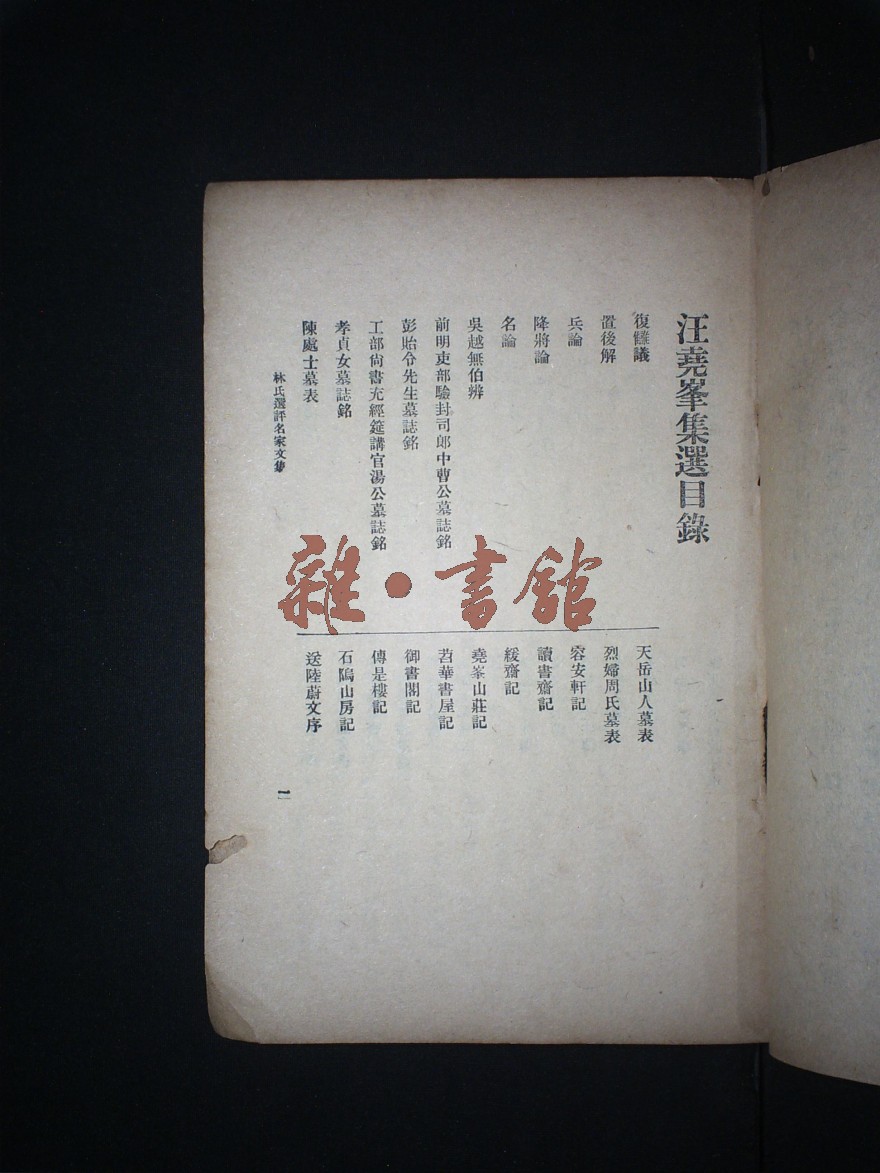 汪堯峯集選目錄
復讎議
置後解
兵論
降將論
名論
吳越無伯辨
前明吏部驗封司郎中曹公墓誌銘
彭貽令先生墓誌銘
工部尙書充經筵講官湯公墓誌銘
孝貞女墓誌銘
陳處士墓表
天岳山人墓表
烈婦周氏墓表
容安軒記
讀書齋記
緩齋記
堯峯山莊記
苕華書屋記
御書閣記
傳是樓記
石隖山房記
送陸蔚文序
林氏選評名家文集
一
雜·書館